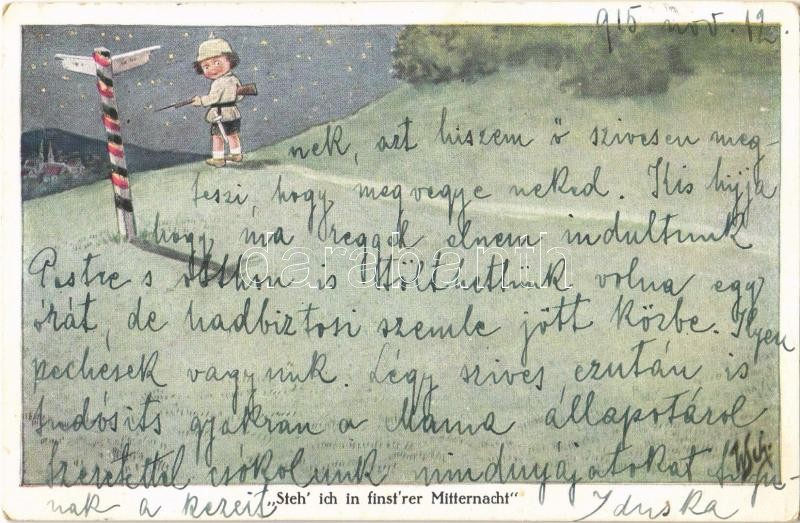 915 nov. 12.
nek, azt hiszem ő szivesen meg-
teszi, hogy megvegye neked. Kis hijja
hogy ma reggel elnem indultunk
Pestre s otthon is tölthettünk volna egy
órát, de hadbiztosi szemle jött közbe. Ilyen
pechések vagyunk. Légy szives ezután is
tudósits gyakran a Mama állapotáról
Szeretettel csókolunk mindnyájatokat
nak a kezeit Iduska
„Steh' ich in finst'rer Mitternacht"
darabanth